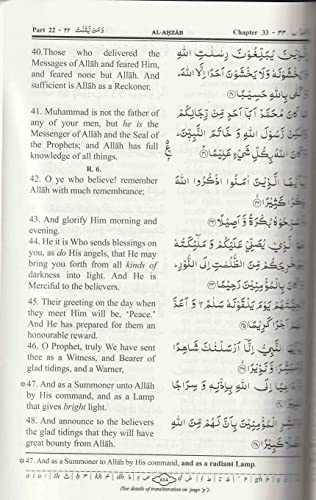 Part 22 - ٢٢ وَمَنْ يَّقْنُتْ
AL-AḤZĀB
Chapter 33 - ٣٣
40. Those who delivered the
Messages of Allāh and feared Him,
and feared none but Allāh. And
sufficient is Allāh as a Reckoner.
41. Muhammad is not the father of
any of your men, but he is the
Messenger of Allāh and the Seal of
the Prophets; and Allāh has full
knowledge of all things.
R. 6.
42. O ye who believe! remember
Allāh with much remembrance;
43. And glorify Him morning and
evening.
44. He it is Who sends blessings on
you, as do His angels, that He may
bring you forth from all kinds of
darkness into light. And He is
Merciful to the believers.
45. Their greeting on the day when
they meet Him will be, 'Peace.'
And He has prepared for them an
honourable reward.
46. O Prophet, truly We have sent
thee as a Witness, and Bearer of
glad tidings, and a Warner,
47. And as a Summoner unto Allāh
by His command, and as a Lamp
that gives bright light.
48. And announce to the believers
the glad tidings that they will have
great bounty from Allāh.
الَّذِيْنَ يُبَلِّغُوْنَ رِسٰلٰتِ اللّٰهِ
وَيَخْشَوْنَهٗ وَلَا يَخْشَوْنَ اَحَدًا اِلَّا اللّٰهَ
وَكَفٰى بِاللّٰهِ حَسِيْبًا
مَا كَانَ مُحَمَّدٌ اَبَآ اَحَدٍ مِّنْ رِّجَالِكُمْ
وَلٰكِنْ رَّسُوْلَ اللّٰهِ وَ خَاتَمَ النَّبِيّٖنَ
وَكَانَ اللّٰهُ بِكُلِّ شَيْءٍ عَلِيْمًا
يٰۤاَيُّهَا الَّذِيْنَ اٰمَنُوا اذْكُرُوا اللّٰهَ
ذِكْرًا كَثِيْرًا
وَّسَبِّحُوْهُ بُكْرَةً وَّ اَصِيْلًا
هُوَ الَّذِيْ يُصَلِّيْ عَلَيْكُمْ وَ مَلٰٓئِكَتُهٗ
لِيُخْرِجَكُمْ مِّنَ الظُّلُمٰتِ اِلَى النُّوْرِ
وَكَانَ بِالْمُؤْمِنِيْنَ رَحِيْمًا
تَحِيَّتُهُمْ يَوْمَ يَلْقَوْنَهٗ سَلٰمٌ وَ اَعَدَّ
لَهُمْ اَجْرًا كَرِيْمًا
يٰۤاَيُّهَا النَّبِيُّ اِنَّاۤ اَرْسَلْنٰكَ شَاهِدًا
وَّدَاعِيًا اِلَى اللّٰهِ بِاِذْنِهٖ وَ سِرَاجًا
وَبَشِّرِ الْمُؤْمِنِيْنَ بِاَنَّ لَهُمْ مِّنَ اللّٰهِ
47. And as a Summoner to Allāh by His command, and as a radiant Lamp.
(See details of transliteration on page)